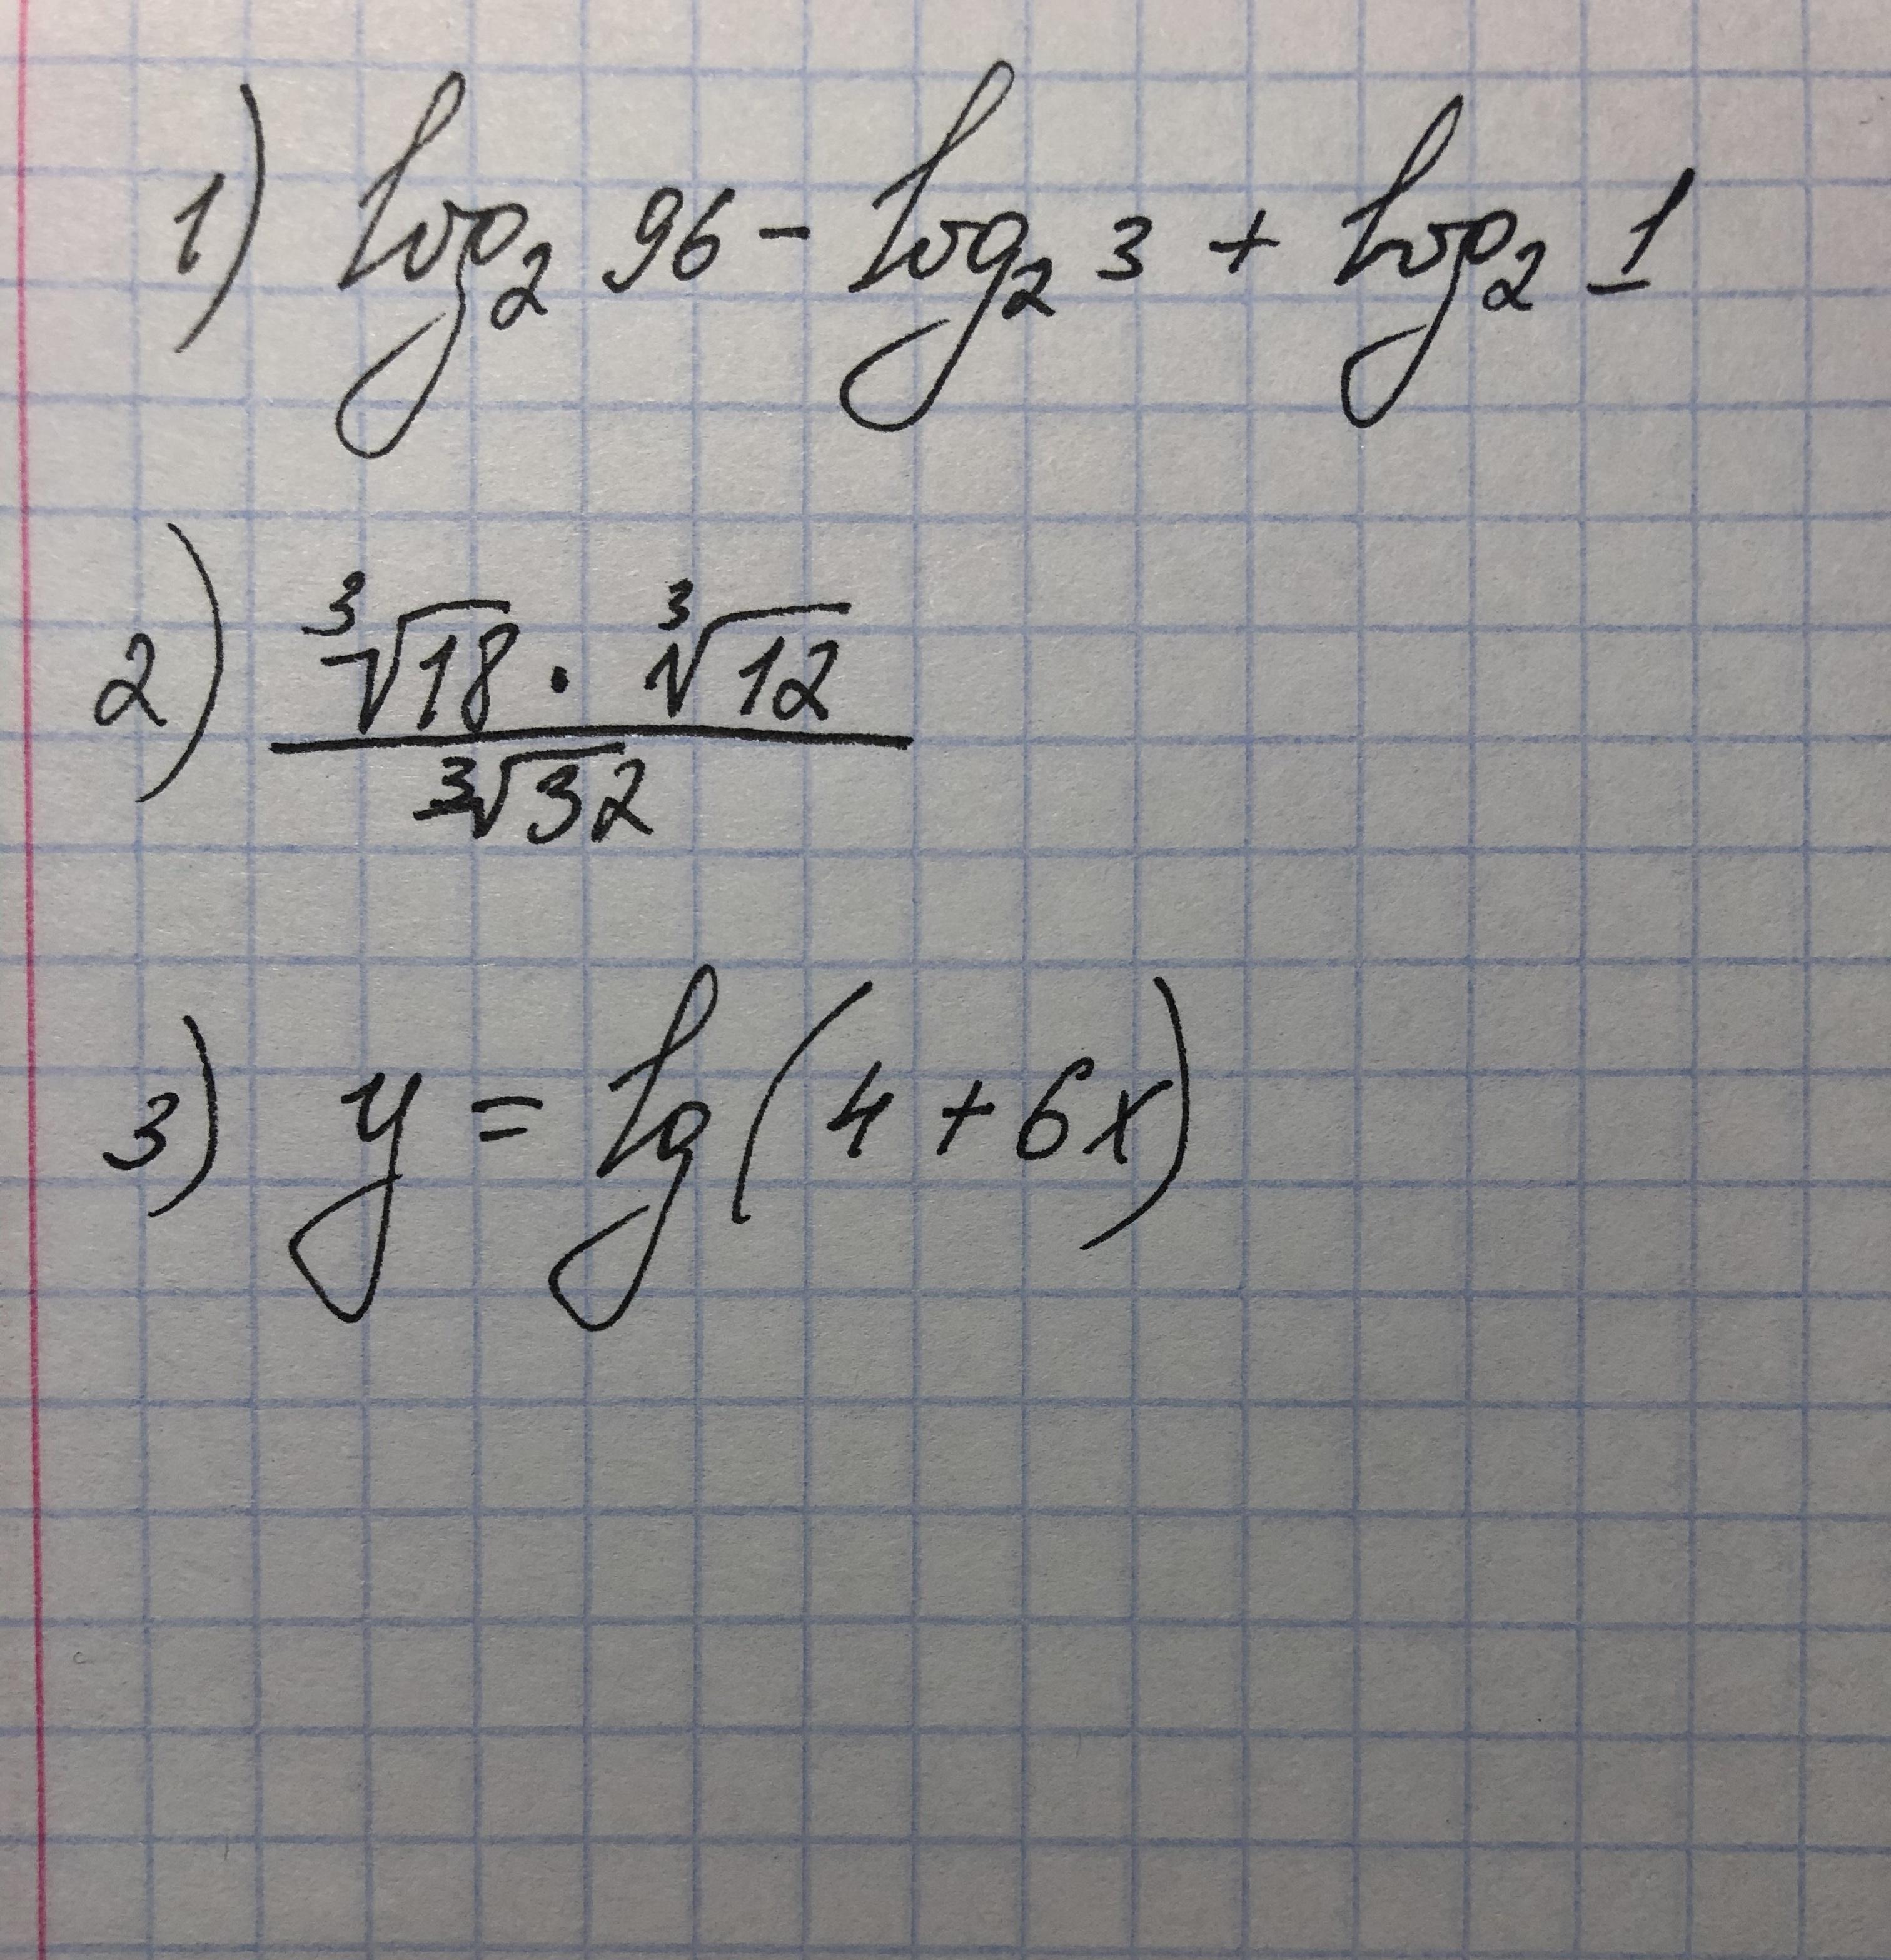 1) log₂ 96 - log₂ 3 + log₂ 1
2) (∛18 · ∛12) / ∛32
3) y = lg(4 + 6x)